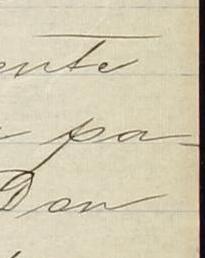 ente
pa-
Don